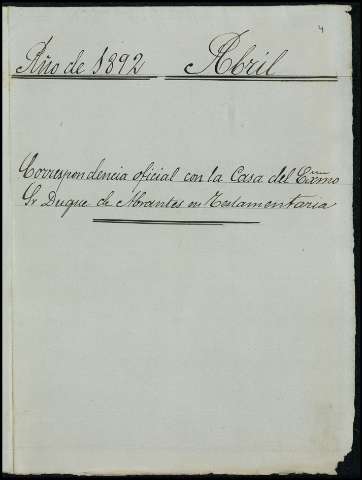 4
Año de 1892 Abril
Correspondencia oficial con la Casa del Exmo
Sr Duque de Abrantes en Testamentaria